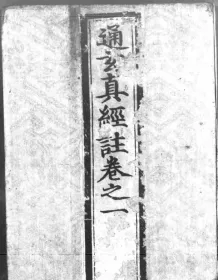 通玄真經註卷之一